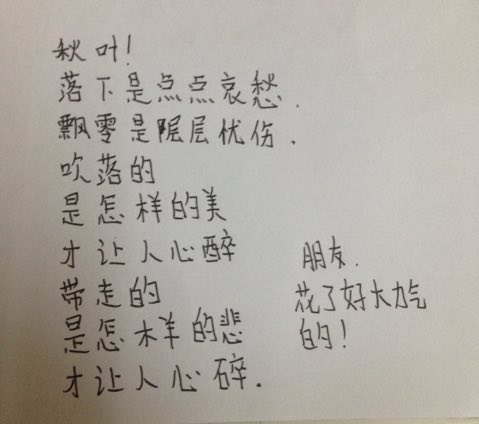 秋叶!
落下是点点哀愁.
飘零是层层忧伤.
吹落的
是怎样的美
才让人心醉
带走的
是怎样的悲
才让人心碎.
朋友.
花了好大力气
的!